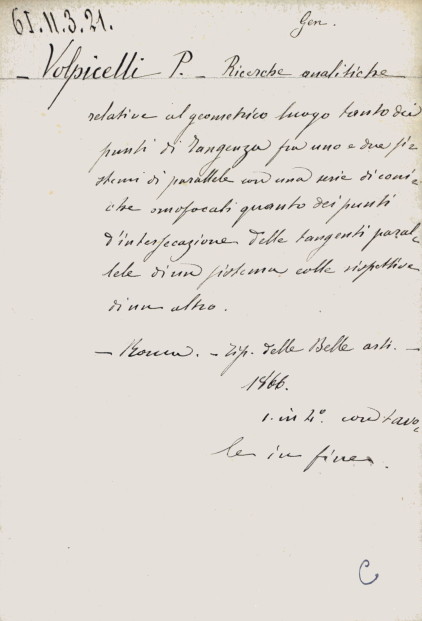 61.11.3.21.
Gen.
- Volpicelli P. - Ricerche analitiche
relative al geometrico luogo tanto dei
punti di tangenza fra uno e due si-
stemi di parallele con una serie di coni-
che omofocali quanto dei punti
d'intersecazione delle tangenti paral-
lele di un sistema colle rispettive
di un altro.
- Roma. - Tip. delle Belle arti. -
1866.
1. in 4° con tavo-
le in fine.
C